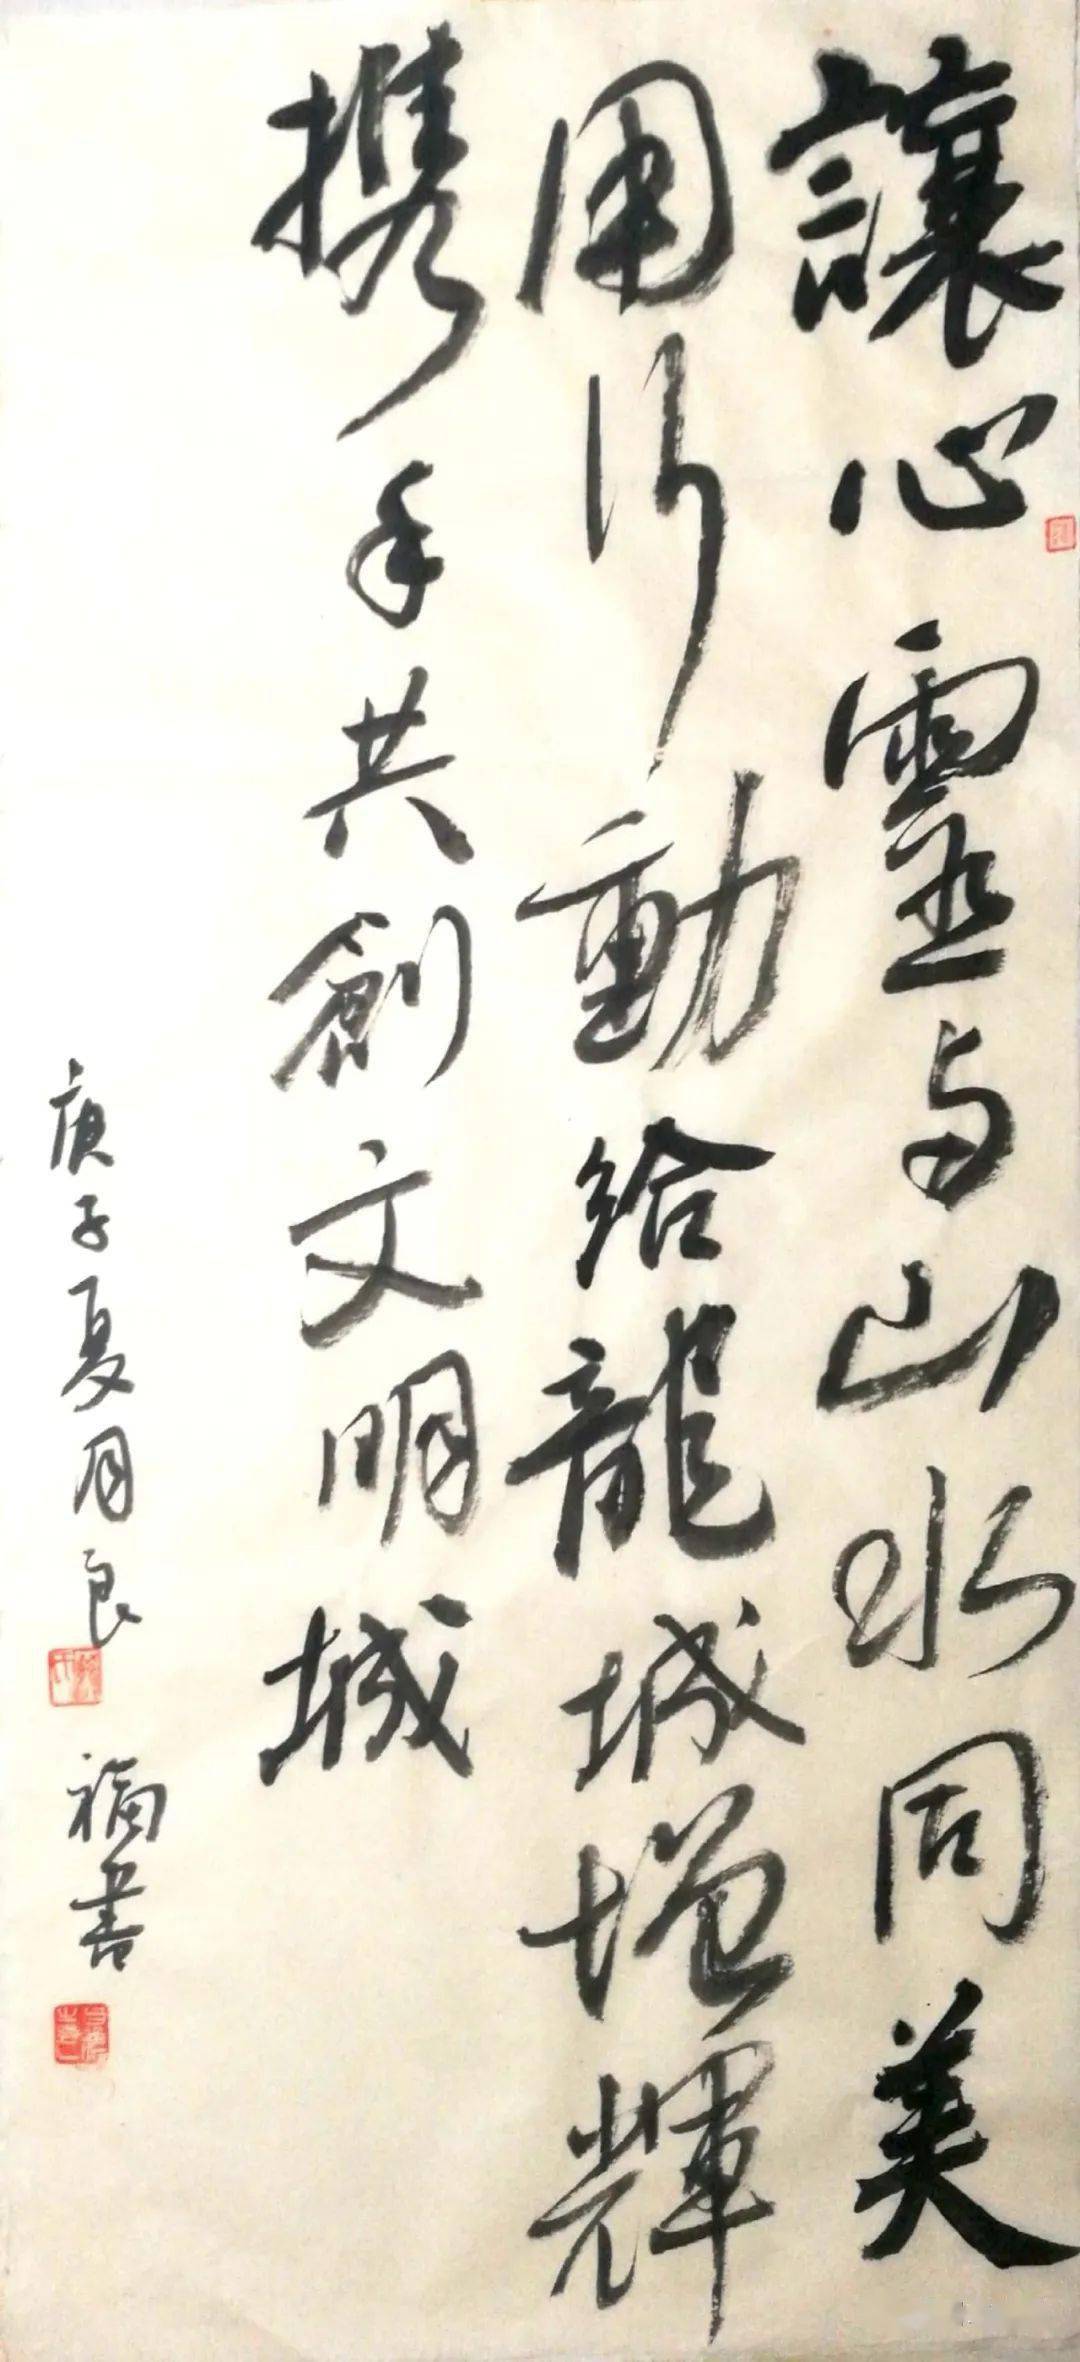 讓心靈与山水同美
用行動給龍城增輝
携手共創文明城
庚子夏月良
福書